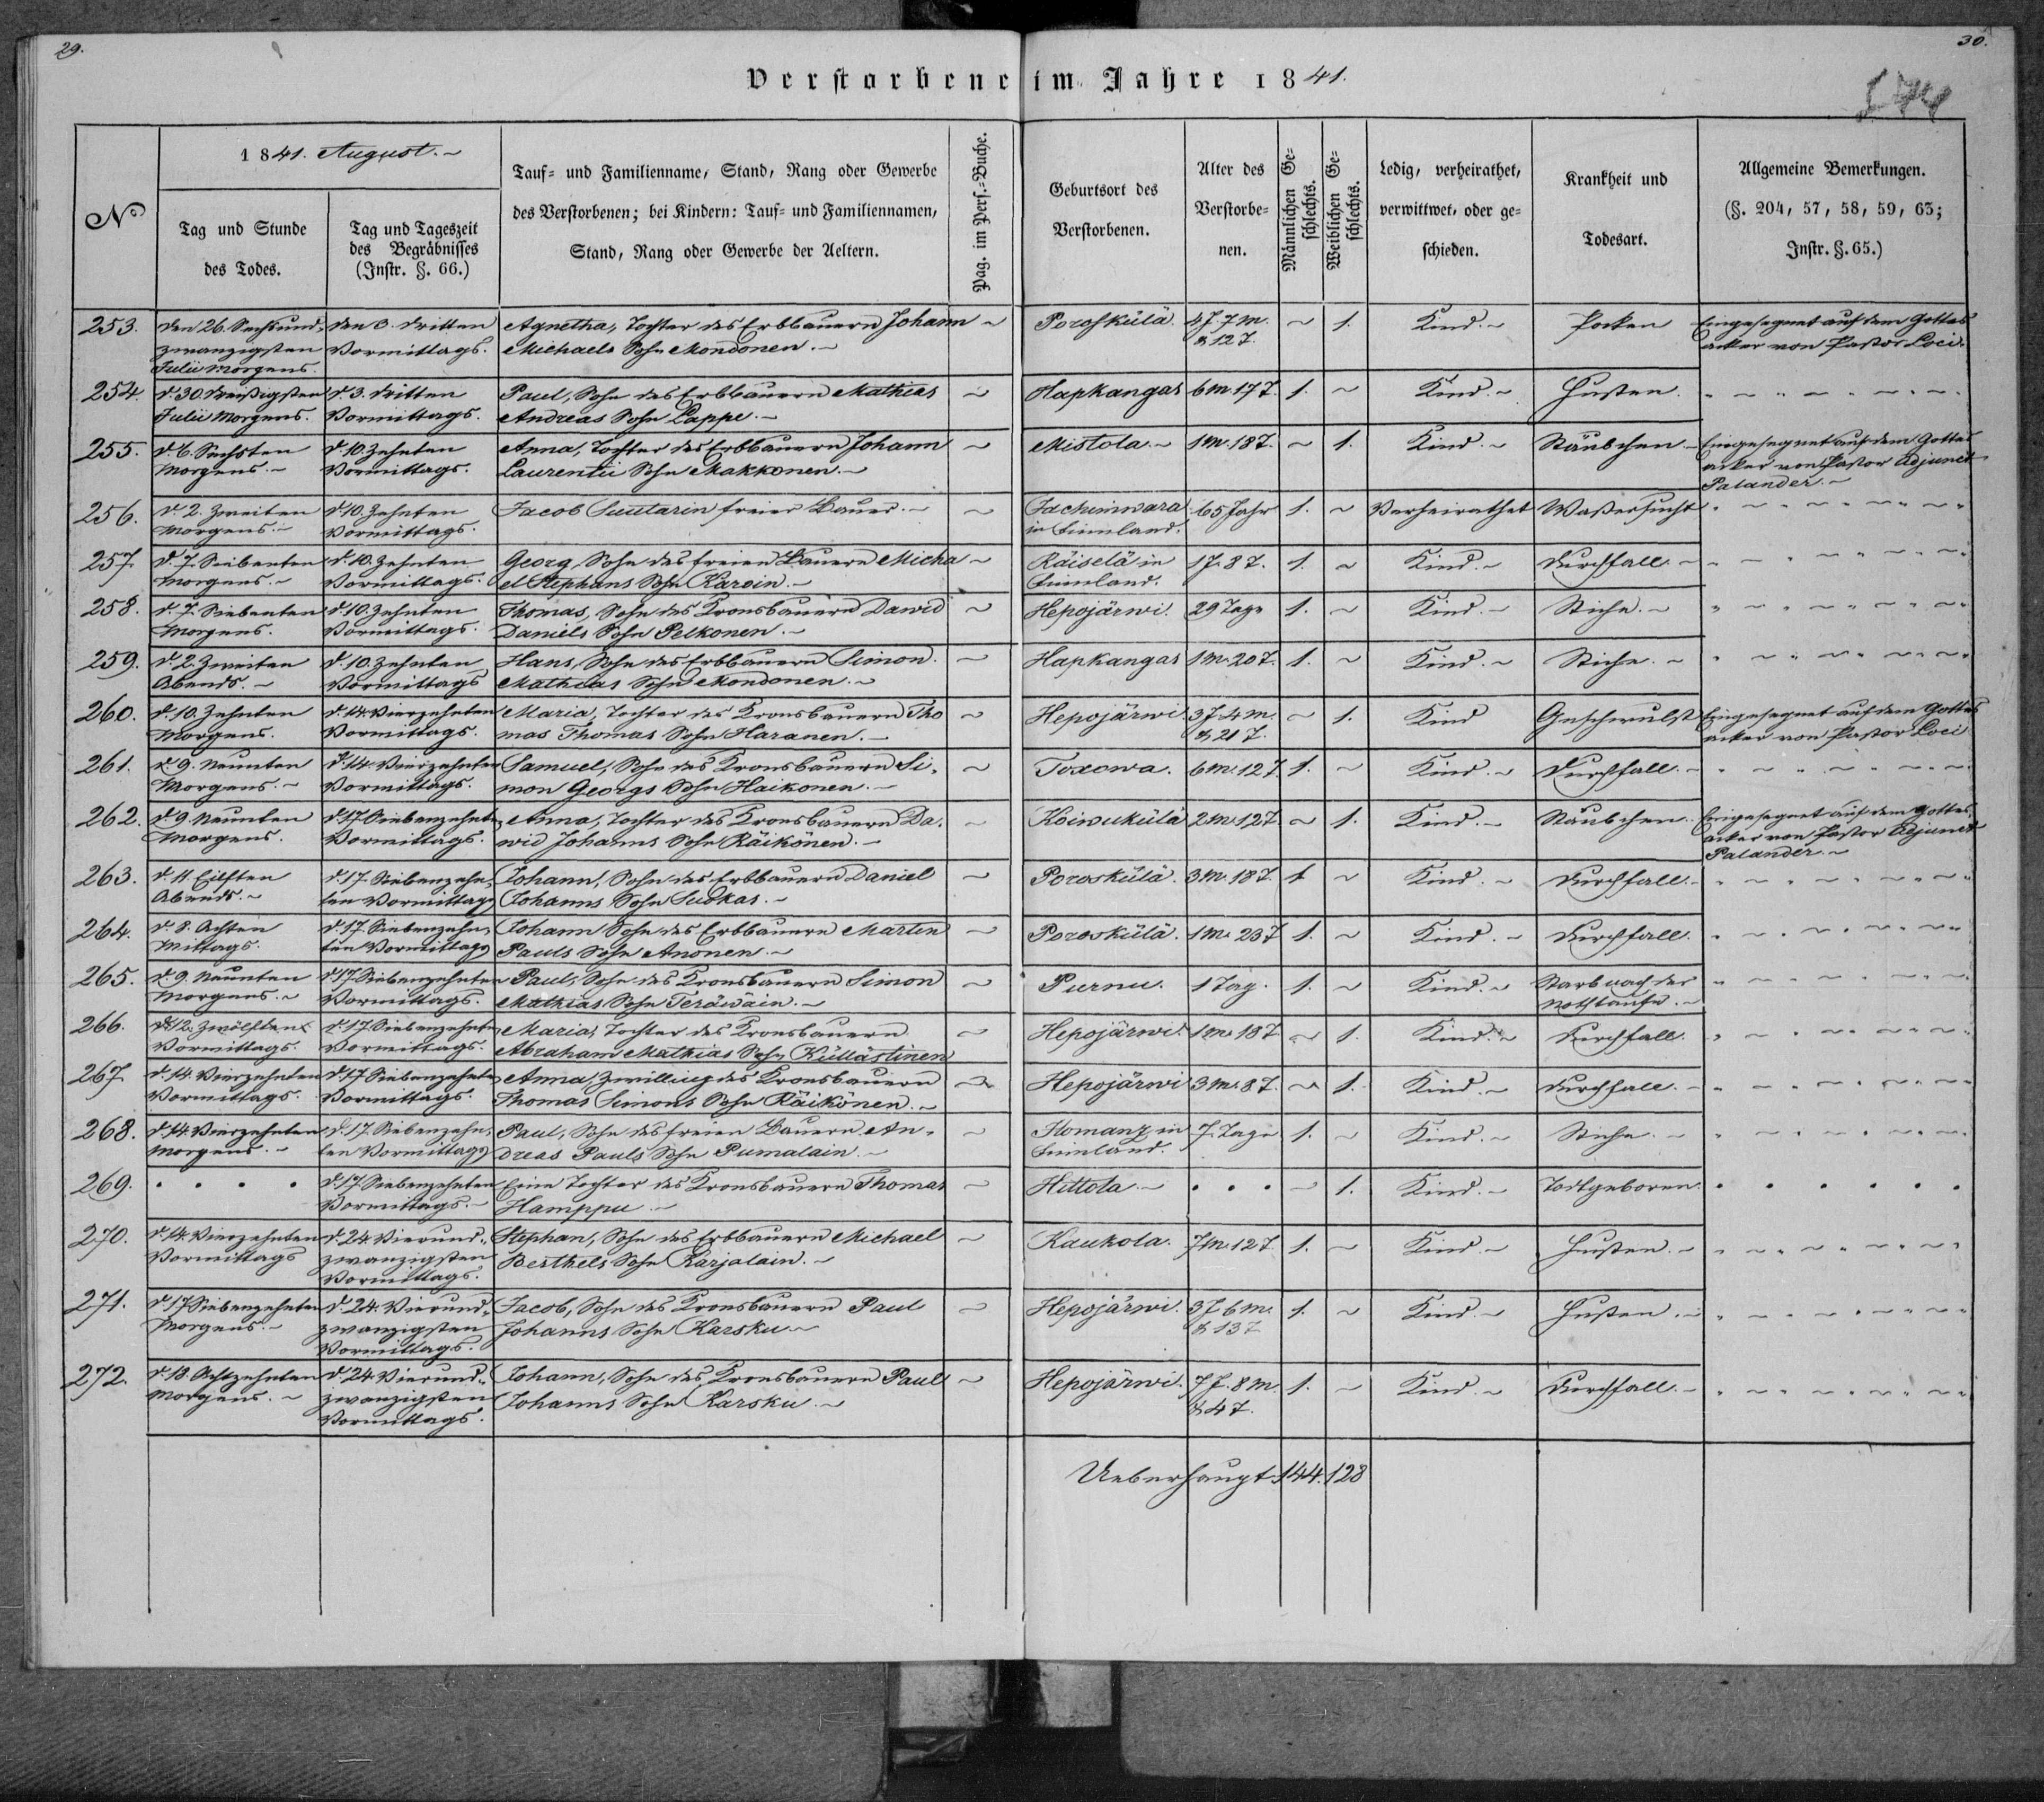 29.
30.
Verstorbene im Jahre 1841.
174
N°
1841. August.
Tag und Stunde
des Todes.
Tag und Tageszeit
des Begräbnisses
(Instr. §. 66.)
Tauf- und Familienname, Stand, Rang oder Gewerbe
des Verstorbenen; bei Kindern: Tauf- und Familiennamen,
Stand, Rang oder Gewerbe der Aeltern.
Pag. im Pers.-Buche.
Geburtsort des
Verstorbenen.
Alter des
Verstorbe-
nen.
Männlichen Ge-
schlechts.
Weiblichen Ge-
schlechts.
Ledig, verheirathet,
verwittwet, oder ge-
schieden.
Krankheit und
Todesart.
Allgemeine Bemerkungen.
(§. 204, 57, 58, 59, 63;
Instr. §. 65.)
253. den 26. Sechsund- den 3. dritten Agnetha, Tochter des Erbbauern Johann ~ Poroskülä. 4J. 7M. ~ 1. Kind.~ Pocken Eingesegnet auf dem Gottes
zwanzigsten Vormittags. Michaels Sohn Mondonen.~ & 12T. acker von Pastor Loci.
Julii Morgens.
254. d. 30. Dreißigsten d. 3. dritten Paul, Sohn des Erbbauern Mathias ~ Hapkangas 6M 17T. 1. ~ Kind.~ Husten. " ~ " ~ " ~ "
Julii Morgens. Vormittags. Andreas Sohn Pappe.~
255. d. 6. Sechsten d. 10. Zehnten Anna, Tochter des Erbbauern Johann ~ Mistola.~ 1M. 18T. ~ 1. Kind.~ Stäubchen.~ Eingesegnet auf dem Gottes
Morgens.~ Vormittags. Laurentii Sohn Makkonen.~ acker von Pastor Adjunct
Palander.~
256. d. 2. Zweiten d. 10. Zehnten Jacob Suutarin freier Bauer.~ ~ Jachimwara 65 Jahr 1. ~ Verheirathet Waßersucht " ~ " ~ " ~ "
Morgens.~ Vormittags. in Finnland.
257. d. 7. Siebenten d. 10. Zehnten Georg, Sohn des freien Bauern Micha ~ Räiselä in 1J. 8T. 1. ~ Kind.~ Durchfall.~ " ~ " ~ " ~ "
Morgens.~ Vormittags. el Stephans Sohn Karoin.~ Finnland.
258. d. 7. Siebenten d. 10. Zehnten Thomas, Sohn des Kronsbauern Dawid ~ Hepojärwi. 29 Tage 1. ~ Kind.~ Stiche.~ " ~ " ~ " ~ "
Morgens. Vormittags. Daniels Sohn Pelkonen.~
259. d. 2. Zweiten d. 10. Zehnten Hans, Sohn des Erbbauern Simon ~ Hapkangas 1M. 20T. 1. ~ Kind.~ Stiche.~ " ~ " ~ " ~ "
Abends.~ Vormittags Mathias Sohn Mondonen.~
260. d. 10. Zehnten d. 14. Vierzehnten Maria, Tochter des Kronsbauern Tho ~ Hepojärwi 3J. 4M. ~ 1. Kind Geschwulst Eingesegnet auf dem Gottes
Morgens. Vormittags. mas Thomas Sohn Haranen.~ & 21T. acker von Pastor Loci
261. d. 9. Neunten d. 14. Vierzehnten Samuel, Sohn des Kronsbauern Si- ~ Toxowa. 6M. 12T. 1. ~ Kind.~ Durchfall.~ " ~ " ~ " ~ "
Morgens.~ Vormittags. mon Georgs Sohn Haikonen.~
262. d. 9. Neunten d. 17. Siebenzehnten Anna, Tochter des Kronsbauern Da- ~ Koiwukülä 2M 12T ~ 1. Kind.~ Stäubchen. Eingesegnet auf dem Gottes
Morgens. Vormittags. wid Johanns Sohn Räikönen.~ acker von Pastor Adjunct
Palander.~
263. d. 11. Eilften d. 17. Siebenzehn- Johann, Sohn des Erbbauern Daniel ~ Poroskülä. 3M. 18T. 1 ~ Kind.~ Durchfall.~ " ~ " ~ " ~ "
Abends.~ ten Vormittags Johanns Sohn Sudkas.~
264. d. 8. Achten d. 17. Siebenzehn- Johann Sohn des Erbbauern Martin ~ Poroskülä. 1M. 23T 1. ~ Kind.~ Durchfall. " ~ " ~ " ~ "
Mittags. ten Vormittags Pauls Sohn Anonen.~
265. d. 9. Neunten d. 17. Siebenzehnten Paul, Sohn des Kronsbauern Simon ~ Purnu. 1 Tag. 1. ~ Kind.~ Starb nach der " ~ " ~ " ~ "
Morgens.~ Vormittags. Mathias Sohn Teräwäin.~ Nothtaufe.~
266. d. 12. Zwölften d. 17. Siebenzehnten Maria, Tochter des Kronsbauern ~ Hepojärwi. 1M. 18T ~ 1. Kind.~ Durchfall. " ~ " ~ " ~ "
Vormittags. Vormittags. Abraham Mathias Sohn Küllästinen
267. d. 14. Vierzehnten d. 17. Siebenzehnten Anna, Zwilling des Kronsbauern ~ Hepojärwi 3M. 8T. ~ 1. Kind.~ Durchfall.~ " ~ " ~ " ~ "
Vormittags. Vormittags. Thomas Simons Sohn Räikönen.~
268. d. 14. Vierzehnten d. 17. Siebenzehn- Paul, Sohn des freien Bauern An- ~ Homanz in 7. Tage 1. ~ Kind.~ Stiche.~ " ~ " ~ " ~ "
Morgens.~ ten Vormittags dreas Pauls Sohn Pumalain.~ Finnland.
269. . . . . d. 17. Siebenzehnten Eine Tochter des Kronsbauern Thomas ~ Hittola.~ . . . ~ 1. Kind.~ Todtgeboren. . . . . . .
Vormittags.~ Hamppu.~
270. d. 14. Vierzehnten d. 24. Vierund- Stephan, Sohn des Erbbauern Michael ~ Kaukola. 7M. 12T. 1. ~ Kind.~ Husten.~ " ~ " ~ " ~ "
Vormittags zwanzigsten Berthels Sohn Karjalain.~
Vormittags.
271. d. 17 Siebenzehnten d. 24. Vierund- Jacob, Sohn des Kronsbauern Paul ~ Hepojärwi. 3J. 6M. 1. ~ Kind.~ Husten.~ " ~ " ~ " ~ "
Morgens.~ zwanzigsten Johanns Sohn Karsku.~ & 13T.
Vormittags.
272. d. 18. Achtzehnten d. 24. Vierund- Johann, Sohn des Kronsbauern Paul ~ Hepojärwi. 7J. 8M. 1. ~ Kind.~ Durchfall.~ " ~ " ~ " ~ "
Morgens.~ zwanzigsten Johanns Sohn Karsku.~ & 4T.
Vormittags.
Ueberhaupt 144. 128